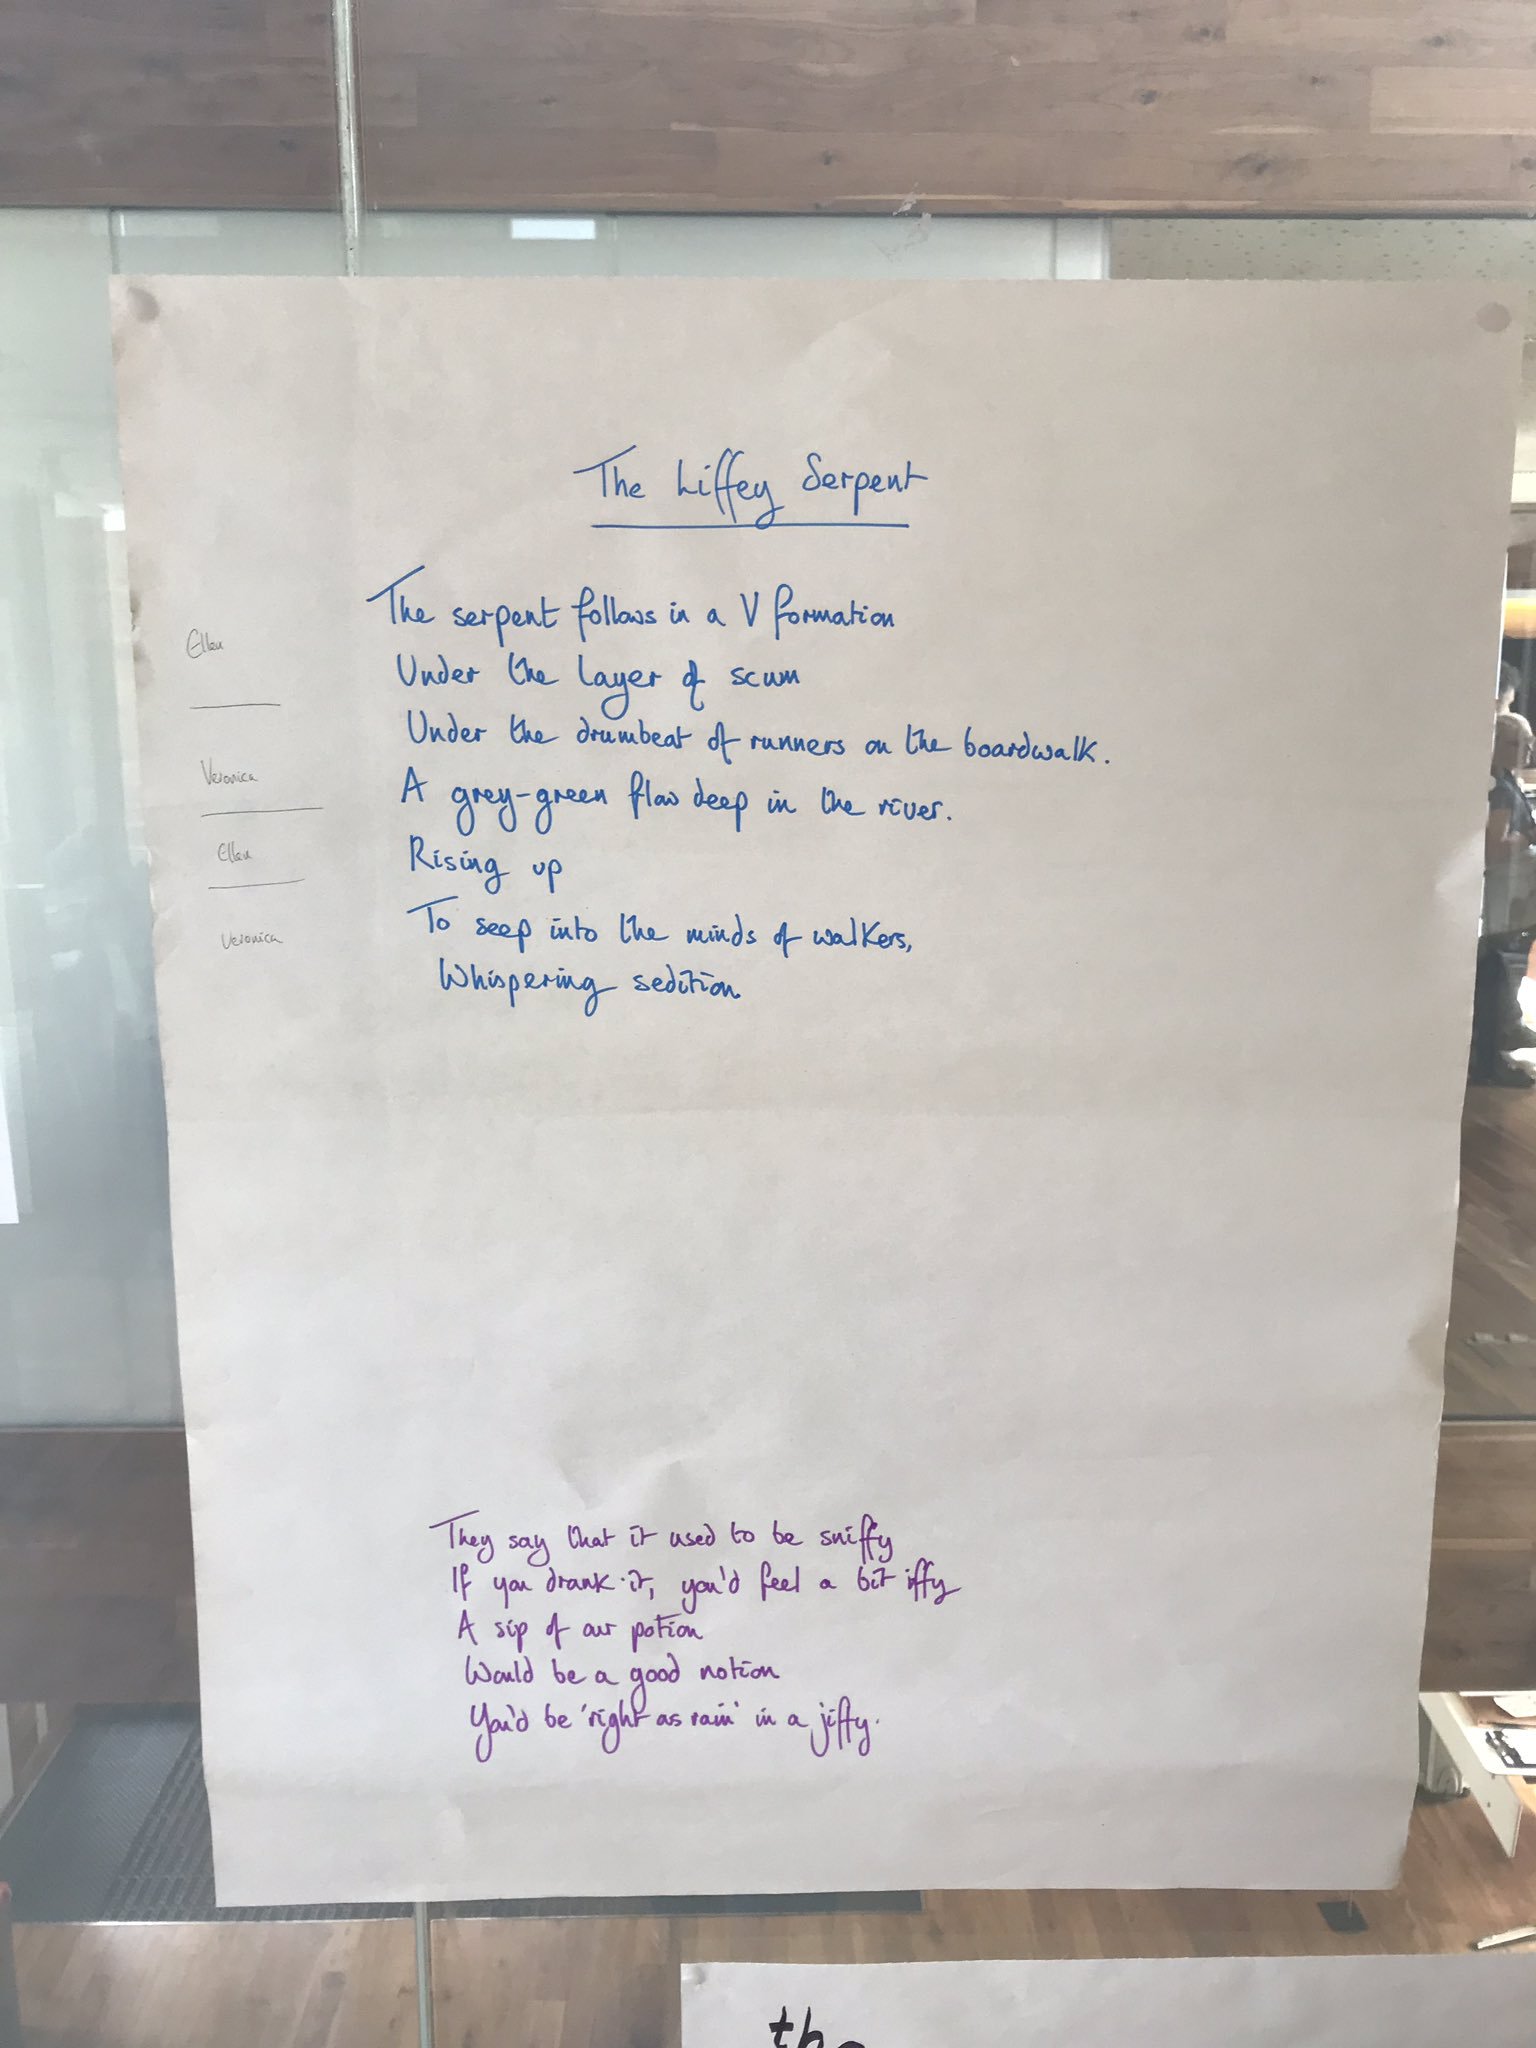 The Liffey Serpent
Ellen
The serpent follows in a V formation
Under the layer of scum
Under the drumbeat of runners on the boardwalk.
Veronica
A grey-green flow deep in the river.
Ellen
Rising up
Veronica
To seep into the minds of walkers,
Whispering sedition.
They say that it used to be sniffy
If you drank it, you'd feel a bit iffy
A sip of our potion
Would be a good notion
You'd be 'right as rain' in a jiffy.